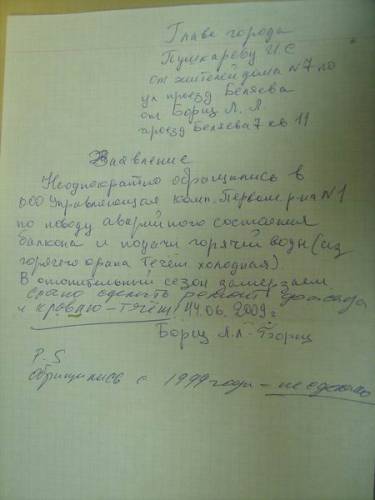 Главе города
Пушкареву И.С
от жителей дома N7 по
ул проезд Беляева
от Борщ Л. Л
проезд Беляева 7 кв 11
Заявление
Неоднократно обращались в
ООО Управляющая комп. Первом. р-на N1
по поводу аварийного состояния
балкона и подачи горячий воды (из
горячего крана течёт холодная).
В отопительный сезон замерзаем
срочно сделать ремонт фасада
и кровлю - течёт! 14.06.2009г
Борщ Л.Л - Борщ
P.S
обращались с 1999 года - не сделано